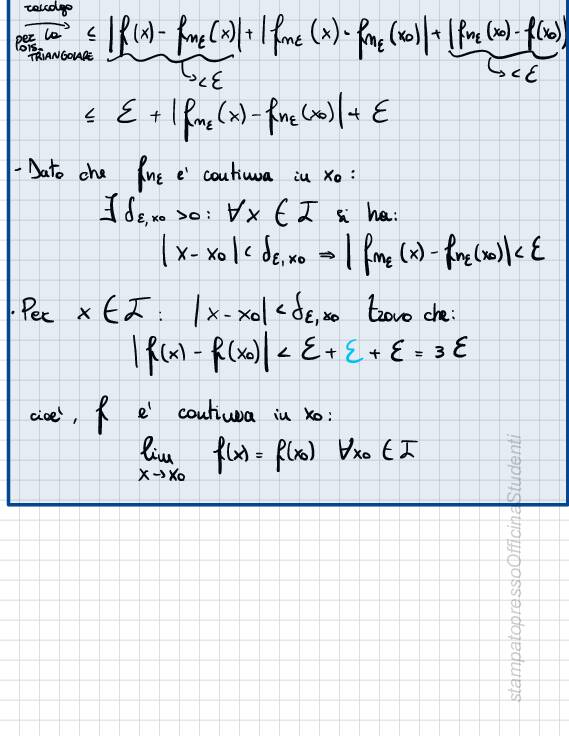 raccolgo
per la
DIS.
TRIANGOLARE
≤ |f(x) - fnε(x)| + |fnε(x) - fnε(x0)| + |fnε(x0) - f(x0)|
↳ < ε ↳ < ε
≤ ε + |fnε(x) - fnε(x0)| + ε
- Dato che fnε e' continua in x0 :
∃ δε,x0 >0 : ∀x ∈ I si ha:
|x - x0| < δε,x0 ⇒ |fnε(x) - fnε(x0)| < ε
• Per x ∈ I : |x - x0| < δε,x0 trovo che:
|f(x) - f(x0)| < ε + ε + ε = 3 ε
cioe', f e' continua in x0 :
lim f(x) = f(x0) ∀x0 ∈ I
x→x0
stampatopressoOfficinaStudenti